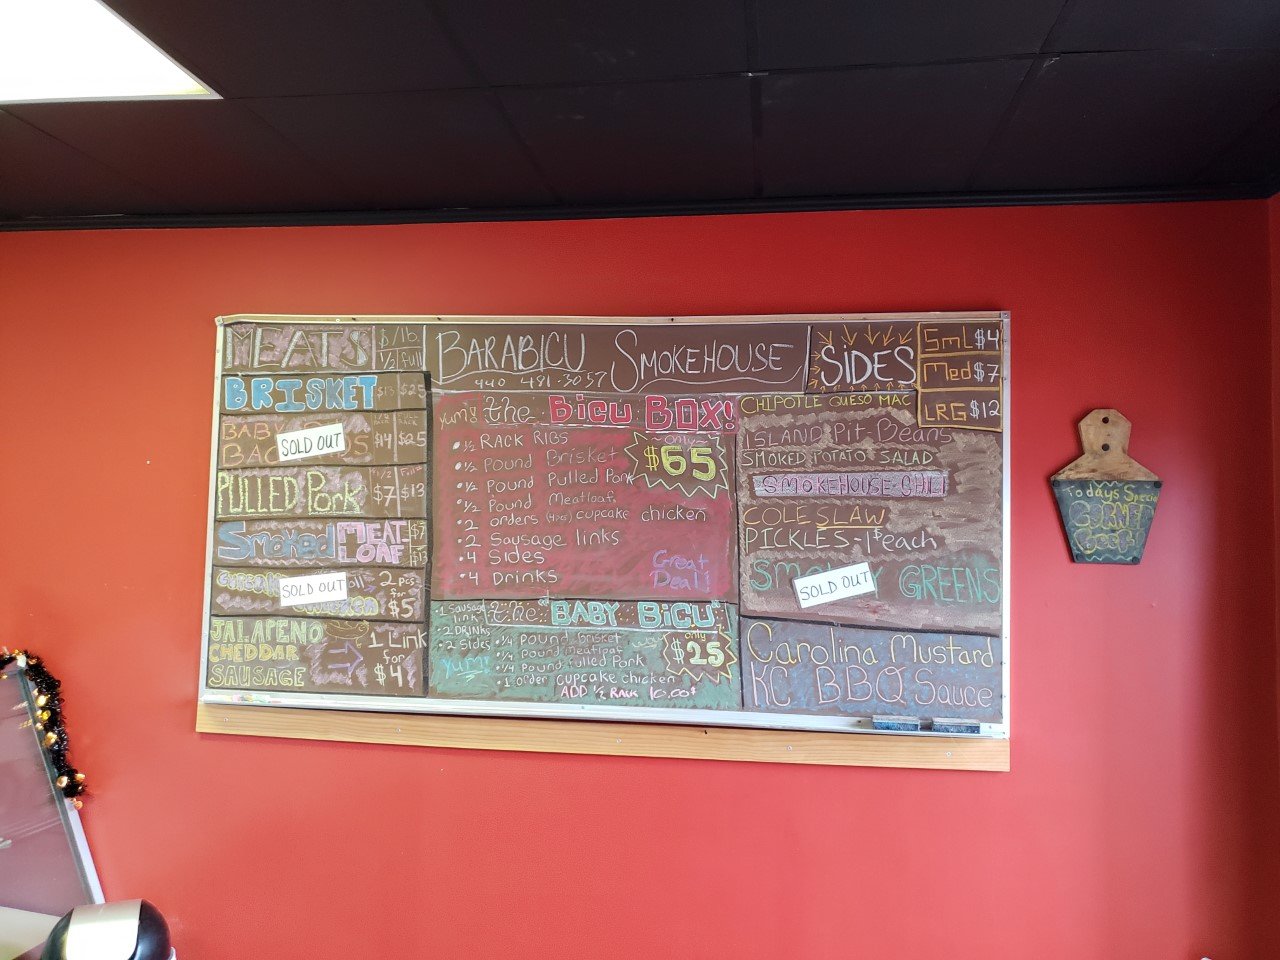 MEATS
$/lb.
1/2 full
BRISKET $13 $25
BABY
BAC
SOLD OUT
$14 $25
PULLED Pork
1/2 Full
$7 $13
Smoked MEAT-
LOAF
$7
$13
SOLD OUT
2 pcs
for
$5
JALAPENO
CHEDDAR
SAUSAGE
1 Link
for
$4
BARABICU SMOKEHOUSE
440 481-3057
yum! the BiCU BOX!
only
$65
• 1/2 RACK RIBS
• 1/2 Pound Brisket
• 1/2 Pound Pulled Pork
• 1/2 Pound Meatloaf
• 2 orders (4pcs) cupcake chicken
• 2 Sausage links
• 4 Sides
• 4 Drinks
Great
Deal!
• 1 Sausage
link
• 2 DRINKS
• 2 Sides
Yum!
the "BABY BiCU"
only
$25
• 1/4 pound brisket
• 1/4 pound meatloaf
• 1/4 pound pulled Pork
• 1 order cupcake chicken
ADD 1/2 RACK 10.00$
SiDES
Sml $4
Med $7
LRG $12
CHIPOTLE QUESO MAC
ISLAND Pit-Beans
SMOKED POTATO SALAD
SMOKEHOUSE CHILI
COLESLAW
PICKLES-1$ each
SM GREENS
SOLD OUT
Carolina Mustard
KC BBQ Sauce
Todays Special
CORNED
Beef!